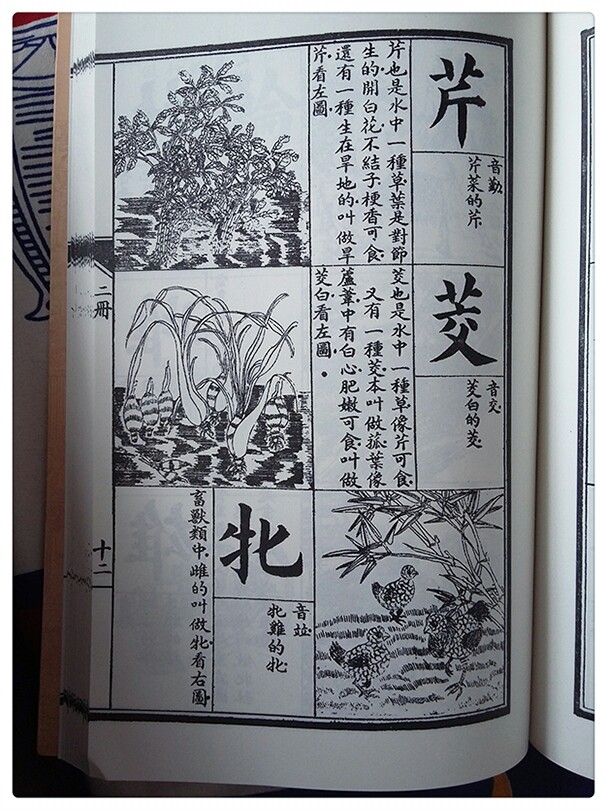 芹
音勤
芹菜的芹
芹也是水中一種草葉是對節
生的開白花不結子梗香可食
還有一種生在旱地的叫做旱
芹看左圖
茭
音交
茭白的茭
茭也是水中一種草像芹可食
又有一種茭本叫做菰葉像
蘆葦中有白心肥嫩可食叫做
茭白看左圖
牝
音竝
牝雞的牝
畜獸類中雌的叫做牝看右圖
二冊
十二